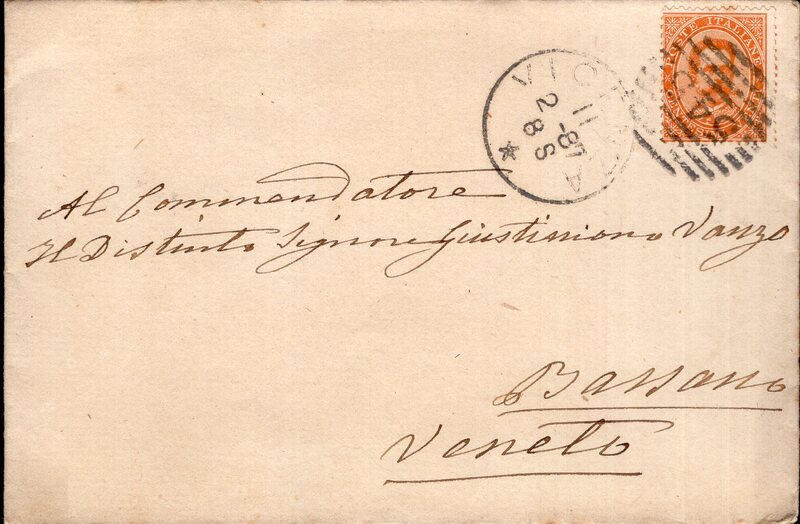 POSTE ITALIANE
VICENZA
11-87
2 8 S
Al Commendatore
Il Distinto Signore Giustiniano Vanzo
Bassano
Veneto